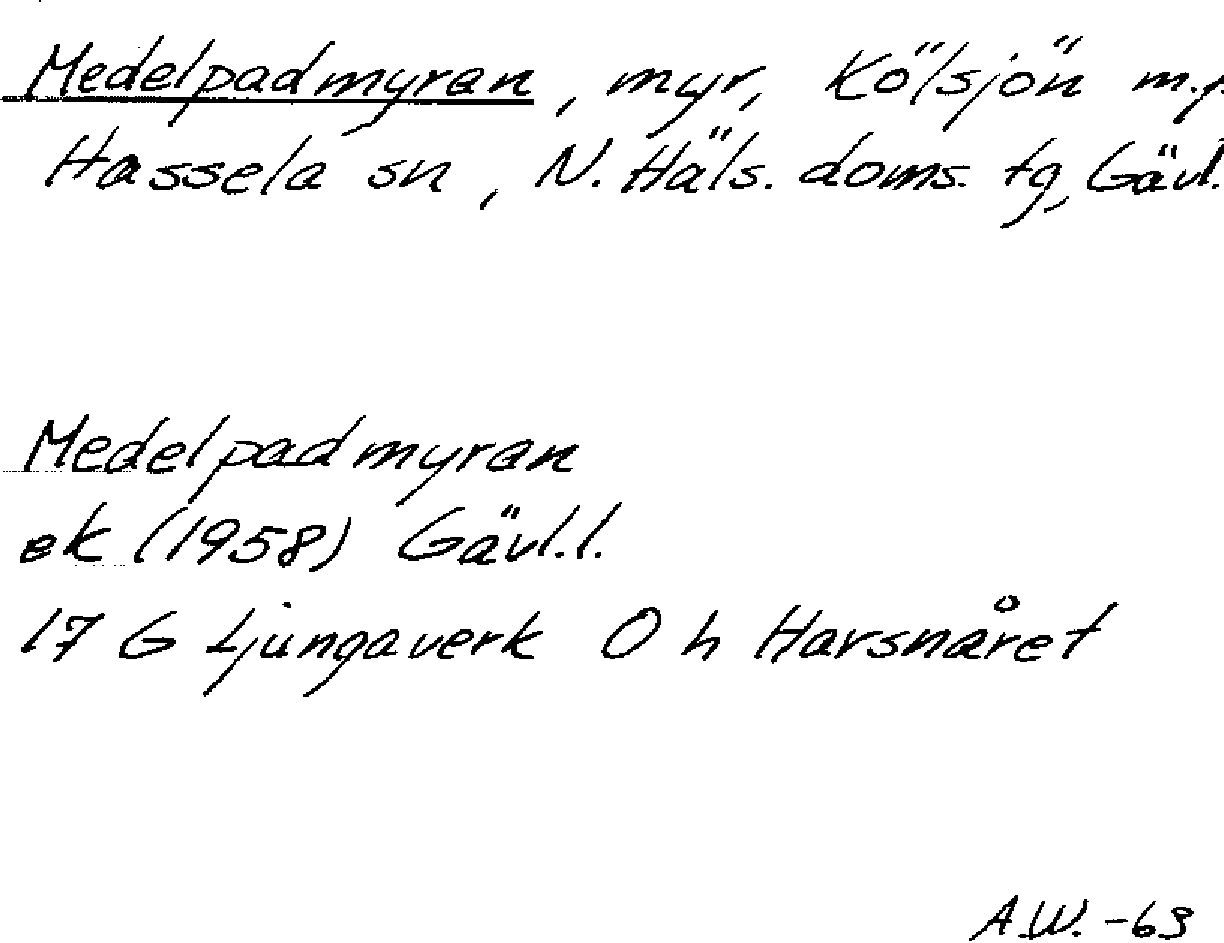 Medelpadmyran, myr, Kölsjön m.
Hassela sn, N. Häls. doms. tg, Gävl.
Medelpadmyran
ek (1958) Gävl.l.
17 G Ljungaverk O h Harsnåret
A.W. -63